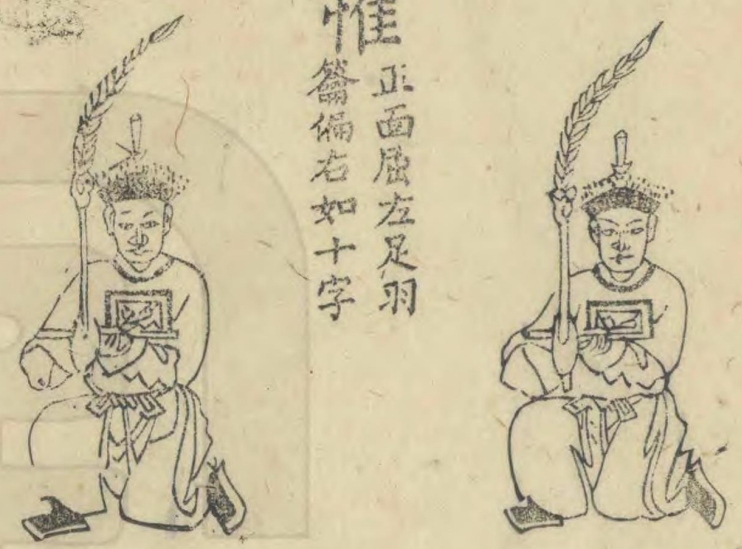 惟
正面屈左足羽
籥偏右如十字